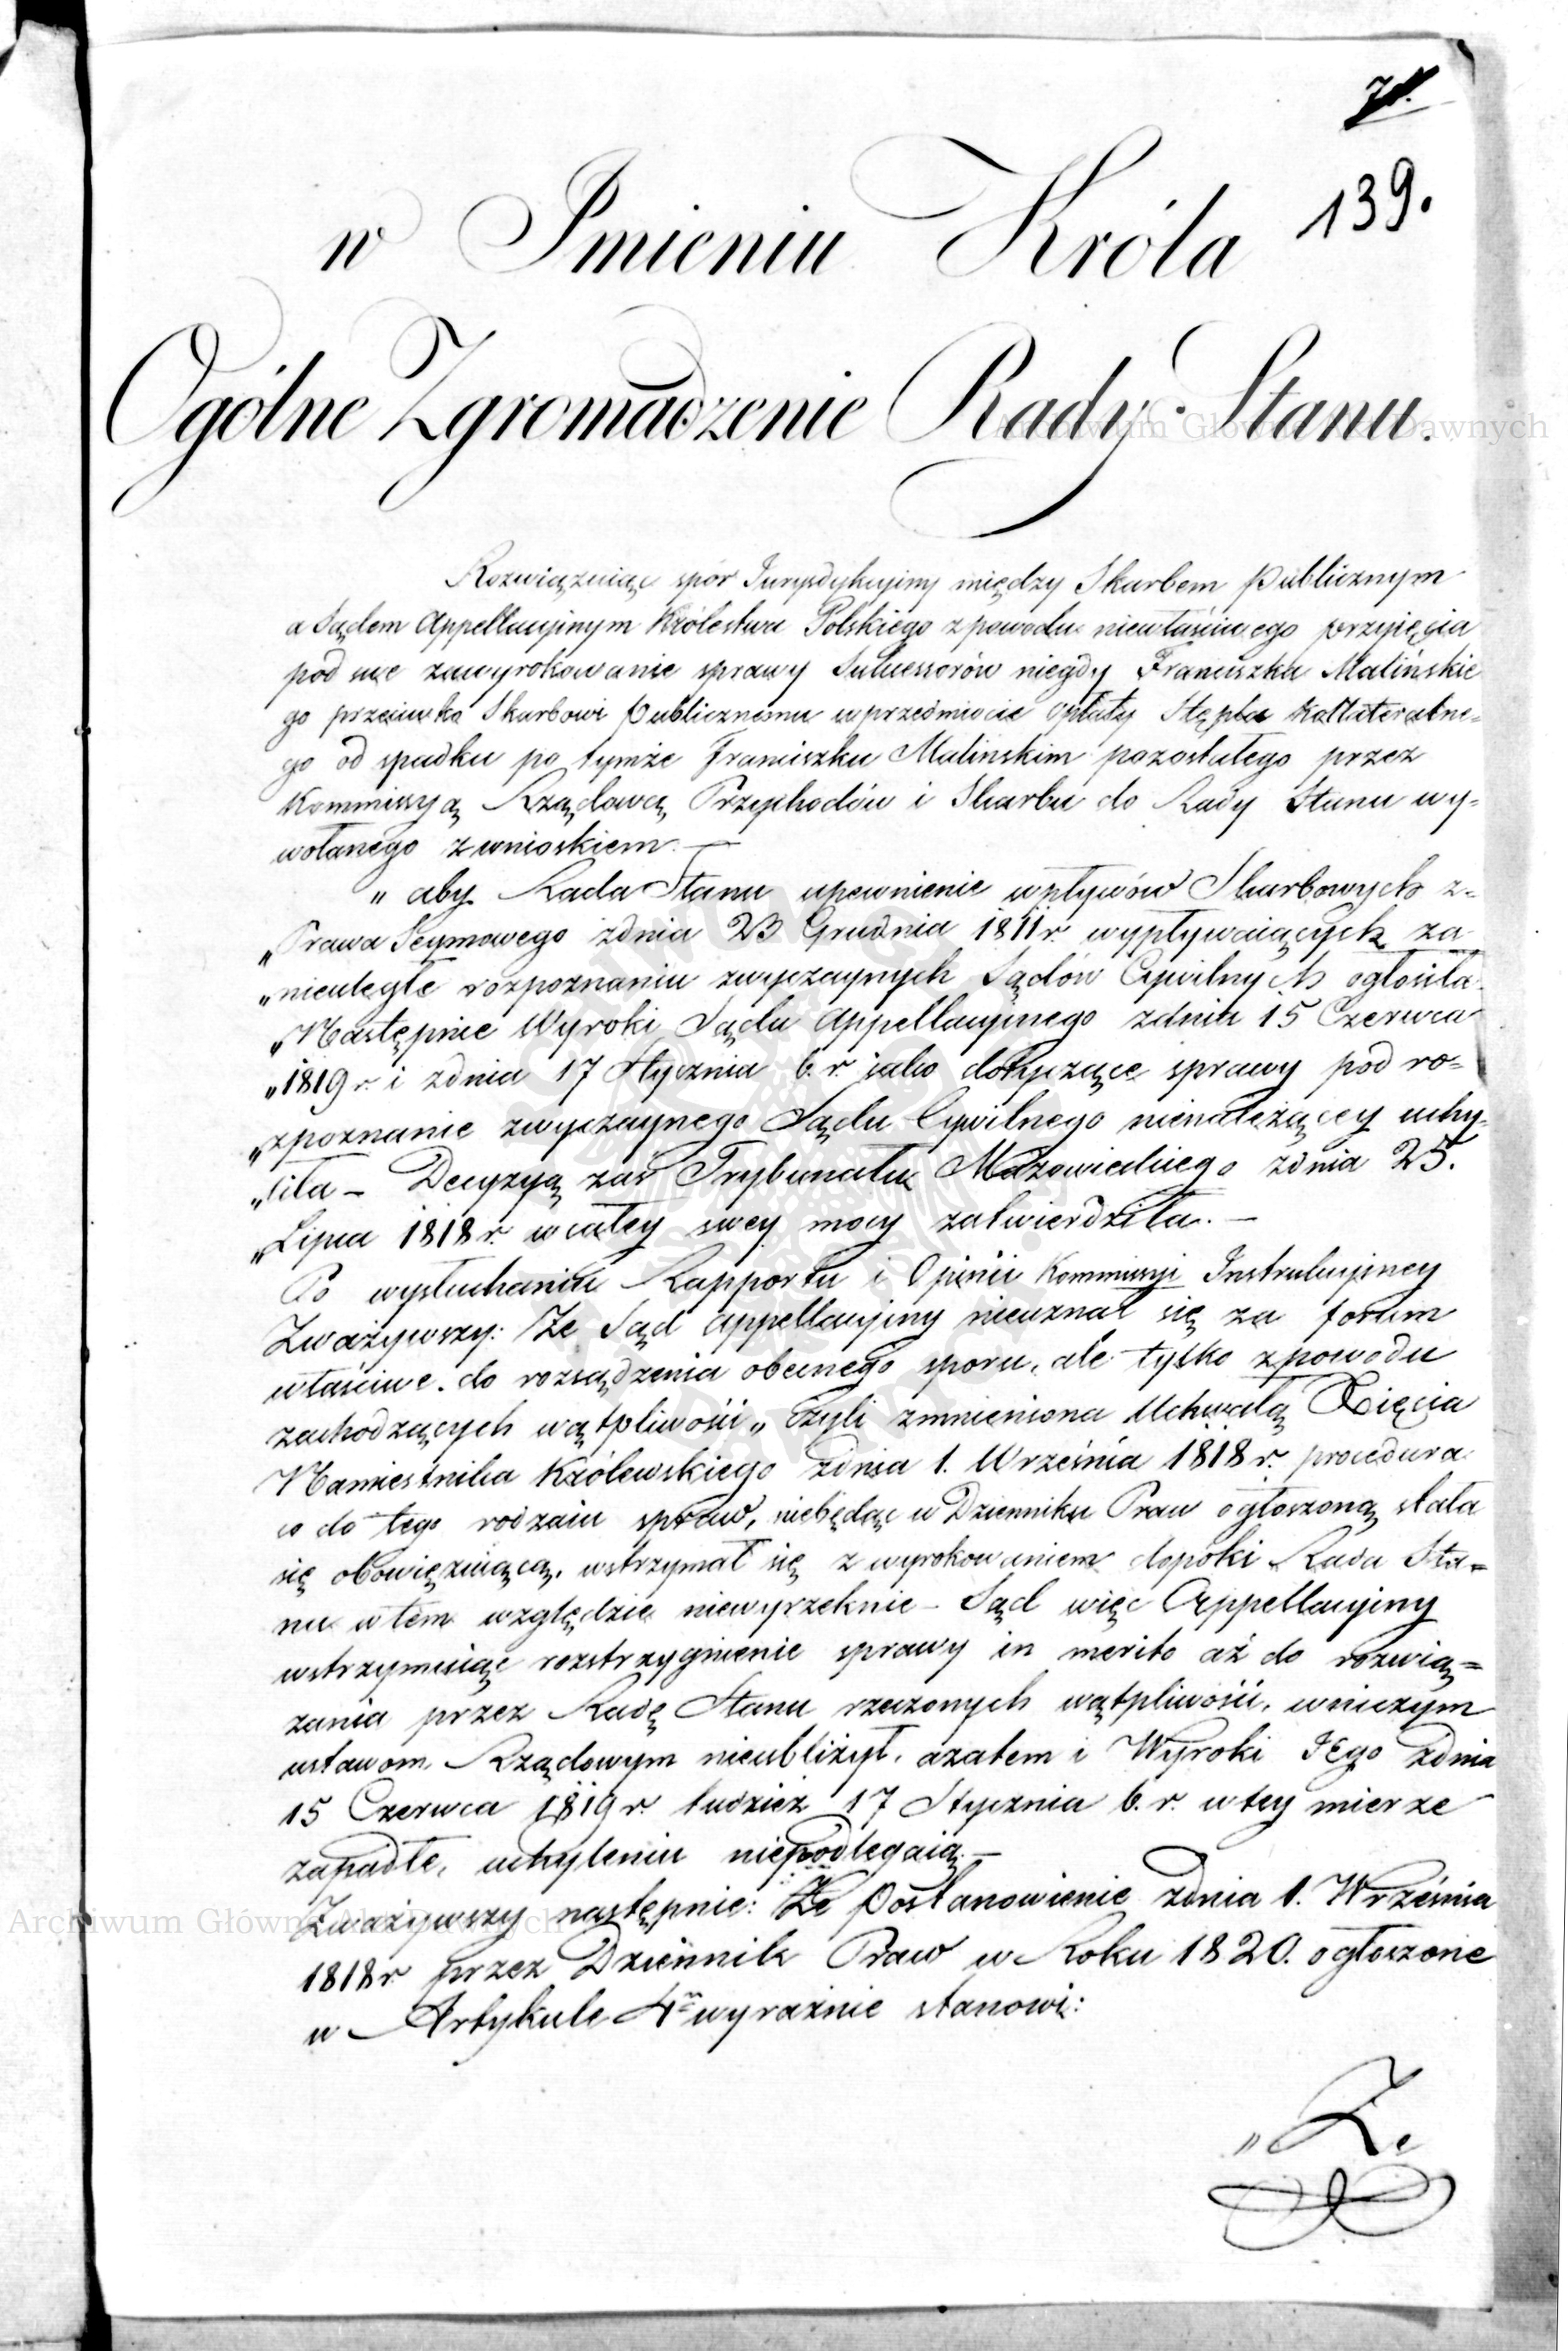 139.
w Imieniu Króla
Ogólne Zgromadzenie Rady Stanu.
Rozwiązuiąc spór Jurysdykcyiny między Skarbem Publicznym
a Sądem Appellacyinym Królestwa Polskiego z powodu niewłaściwego przyięcia
pod swe zawyrokowanie sprawy Sukcessorów niegdy Franciszka Malińskie
go przeciwko Skarbowi Publicznemu w przedmiocie opłaty Stępla Kollateralne=
go od spadku po tymże Franciszku Malińskim pozostałego przez
Kommissyą Rządową Przychodów i Skarbu do Rady Stanu wy=
wołanego z wnioskiem. —
„ aby Rada Stanu upewnienie wpływów Skarbowych z=
„Prawa Seymowego z dnia 23 Grudnia 1811 r. wypływaiących za
„nieuległe rozpoznaniu zwyczaynych Sądów Cywilnych ogłosiła.
„Następnie Wyroki Sądu Appellacyinego z dnia 15 Czerwca
„1819 r. i z dnia 17 Stycznia b. r. iako dotyczące sprawy pod ro=
„zpoznanie zwyczaynego Sądu Cywilnego nienależącey uchy=
„liła – Decyzyą zaś Trybunału Mazowieckiego z dnia 25.
„Lipca 1818 r. w całey swey mocy zatwierdziła. —
Po wysłuchaniu Rapportu i Opinii Kommissyi Instrukcyiney
Zważywszy: Że Sąd Appellacyiny nieuznał się za forum
właściwe do rozsądzenia obecnego sporu, ale tylko z powodu
zachodzących wątpliwości „ czyli zmieniona Uchwałą Xięcia
Namiestnika Królewskiego z dnia 1. Września 1818 r. procedura
co do tego rodzaiu spraw, niebędąc w Dzienniku Praw ogłoszoną stała
się obowięzuiącą, wstrzymał się z wyrokowaniem dopóki Rada Sta=
nu w tem względzie niewyrzeknie – Sąd więc Appellacyiny
wstrzymuiąc rozstrzygnienie sprawy in merito aż do rozwią=
zania przez Radę Stanu rzeczonych wątpliwości, w niczym
ustawom Rządowym nieubliżył, a zatem i Wyroki Jego z dnia
15 Czerwca 1819 r. tudzież 17 Stycznia b. r. w tey mierze
zapadłe, uchyleniu niepodlegaią. —
Zważywszy następnie: Że Postanowienie z dnia 1. Września
1818 r. przez Dziennik Praw w Roku 1820. ogłoszone
w Artykule 4m wyraźnie stanowi:
„Że
Archiwum Główne Akt Dawnych
Archiwum Główne Akt Dawnych